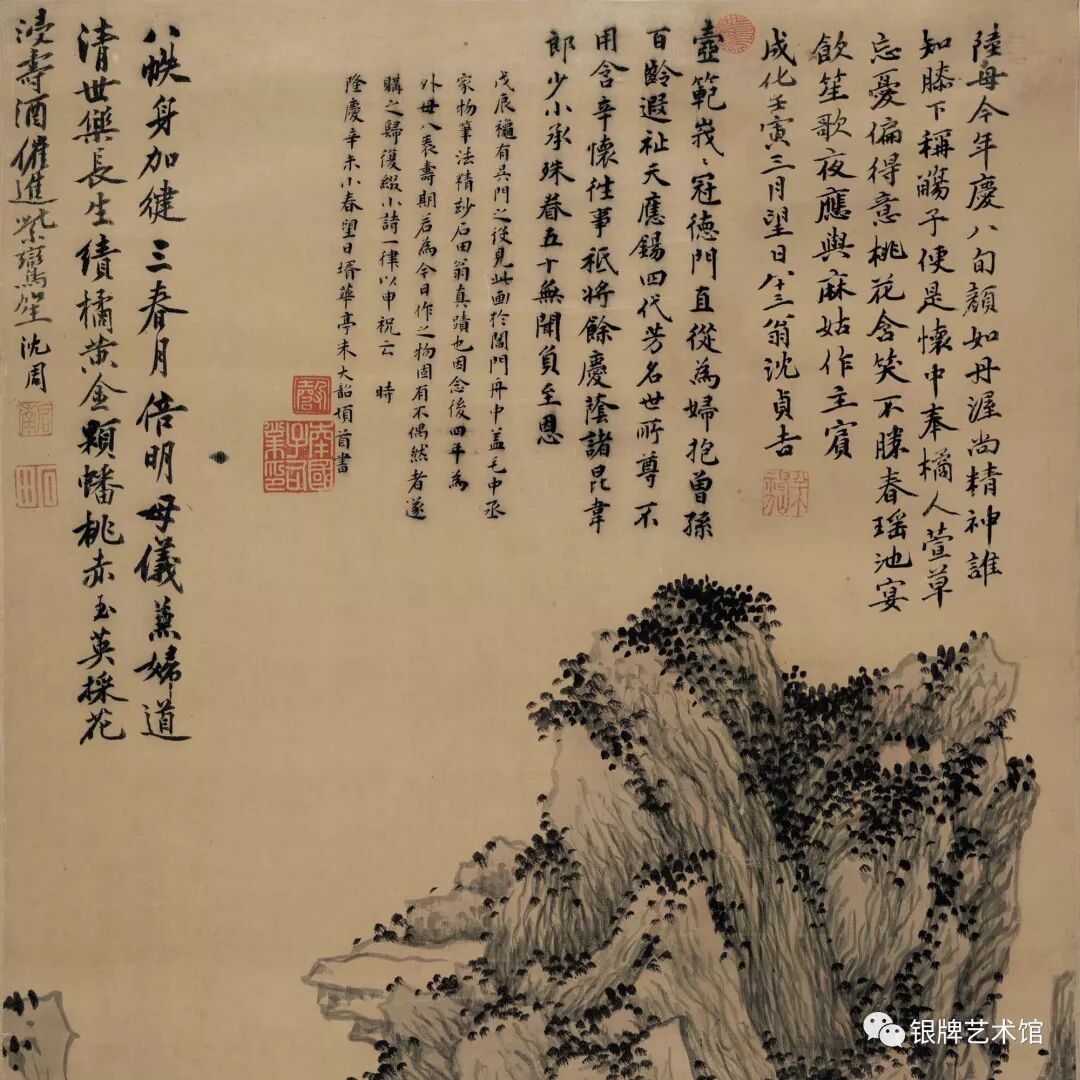 陸母今年慶八旬顏如丹渥尚精神誰
知膝下稱觴子便是懷中奉橘人萱草
忘憂偏得意桃花含笑不勝春瑶池宴
飲笙歌夜應與麻姑作主賓
成化壬寅三月望日八十三翁沈貞吉
壼範峩〻冠德門直從為婦抱曾孫
百齡遐祉天應錫四代芳名世所尊不
用含辛懷往事祗將餘慶蔭諸昆韋
郎少小承殊眷五十無聞負至恩
戊辰龝有吳門之役見此画於閶門舟中盖毛中丞
家物筆法精玅石田翁真蹟也因念後四年為
外母八袠壽期若為今日作之物固有不偶然者遂
購之歸復綴小詩一律以申祝云 時
隆慶辛未小春望日壻華亭朱大韶頓首書
八帙身加健三春月倍明母儀蒹婦道
清世樂長生績橘黄金顆蟠桃赤玉英採花
浸壽酒催進紫鸞笙沈周
啟南
銀牌艺术馆